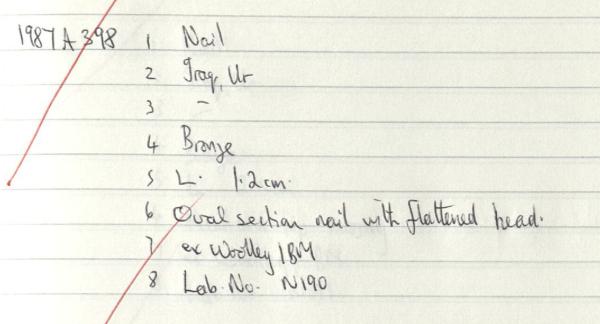 1987 A 398 1 Nail
2 Iraq, Ur
3 -
4 Bronze
5 L. 1.2cm.
6 Oval section nail with flattened head.
7 ex Woolley/BM
8 Lab. No. N190